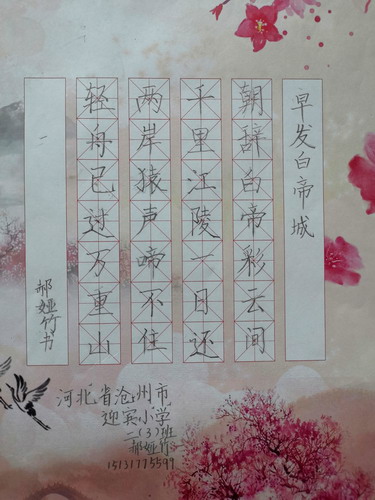 早发白帝城
朝辞白帝彩云间
千里江陵一日还
两岸猿声啼不住
轻舟已过万重山
郝娅竹书
河北省沧州市
迎宾小学
二(3)班
郝娅竹
15131775599